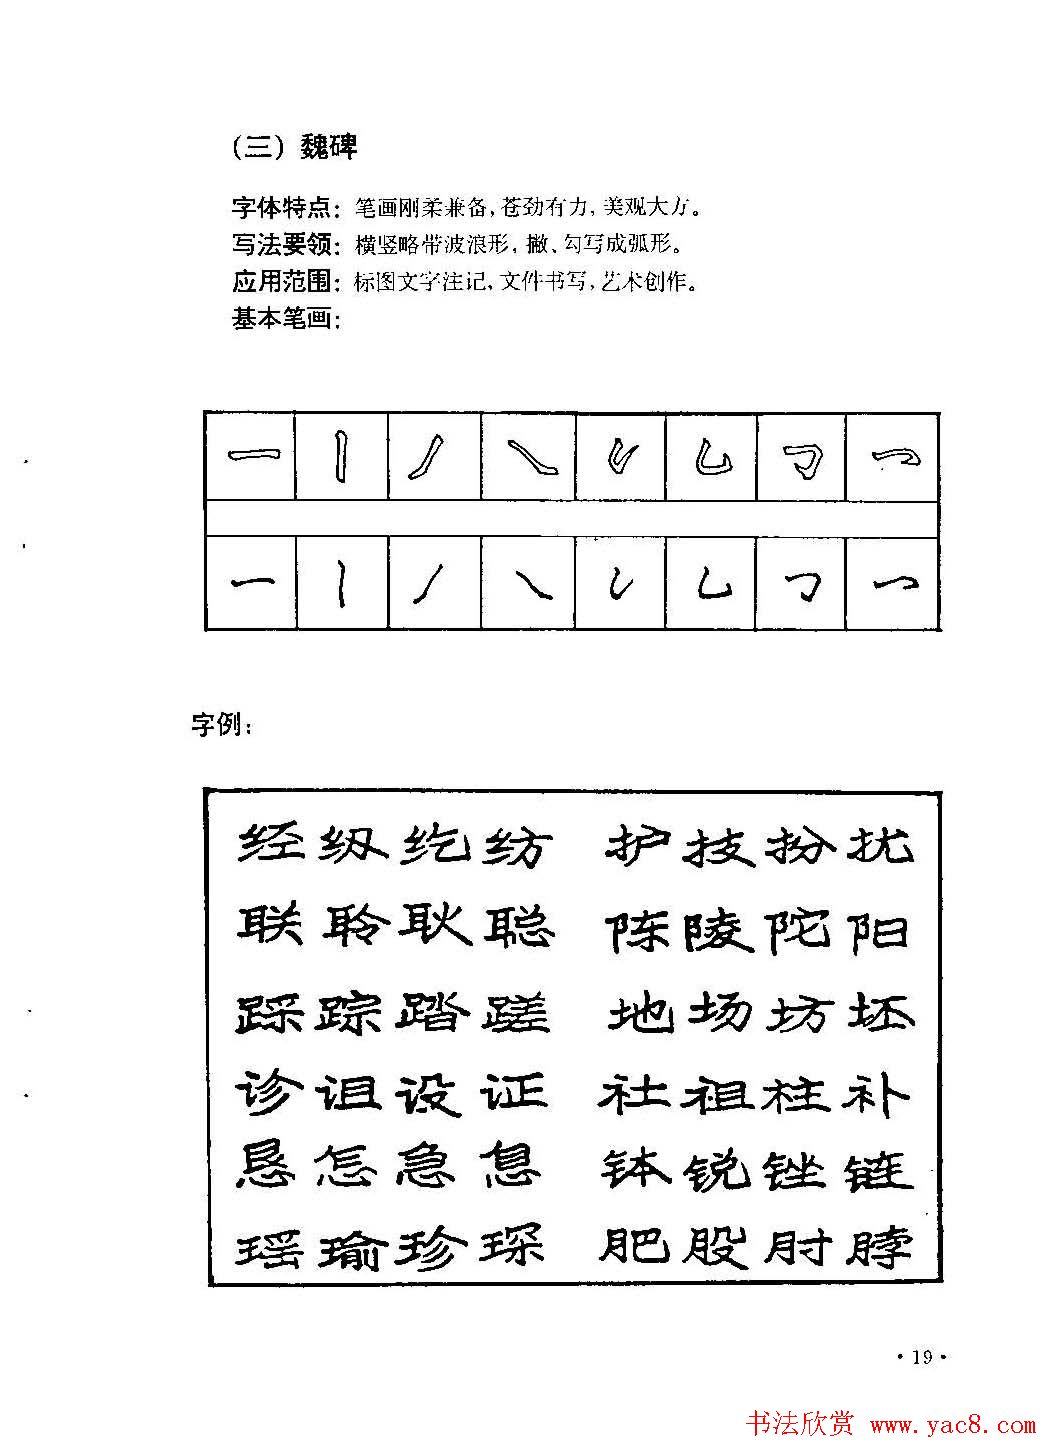 （三）魏碑
字体特点：笔画刚柔兼备，苍劲有力，美观大方。
写法要领：横竖略带波浪形，撇、勾写成弧形。
应用范围：标图文字注记，文件书写，艺术创作。
基本笔画：
字例：
经级纥纺 护技扮扰
联聆耿聪 陈陵陀阳
踩踪踏蹉 地场坊坯
诊诅设证 社祖柱补
恳怎急息 钵锐锉链
瑶瑜珍琛 肥股肘脖
·19·
书法欣赏 www.yac8.com